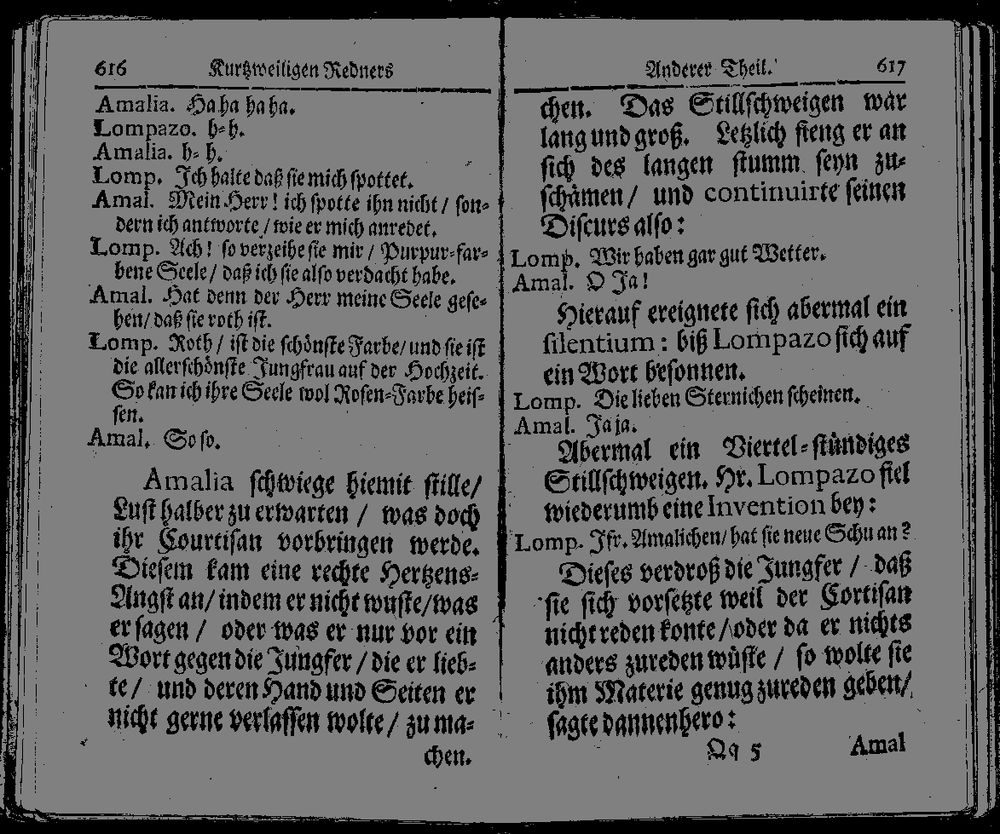 616 Kurtzweiligen Redners
Amalia. Ha ha ha ha.
Lompazo. h-h.
Amalia. h- h.
Lomp. Ich halte daß sie mich spottet.
Amal. Mein Herr! ich spotte ihn nicht / son-
dern ich antworte / wie er mich anredet.
Lomp. Ach! so verzeihe sie mir / Purpur-far-
bene Seele / daß ich sie also verdacht habe.
Amal. Hat denn der Herr meine Seele gese-
hen / daß sie roth ist.
Lomp. Roth / ist die schönste Farbe / und sie ist
die allerschönste Jungfrau auf der Hochzeit.
So kan ich ihre Seele wol Rosen-Farbe heis-
sen.
Amal. So so.
Amalia schwiege hiemit stille /
Lust halber zu erwarten / was doch
ihr Courtisan vorbringen werde.
Diesem kam eine rechte Hertzens-
Angst an / indem er nicht wuste / was
er sagen / oder was er nur vor ein
Wort gegen die Jungfer / die er lieb-
te / und deren Hand und Seiten er
nicht gerne verlassen wolte / zu ma-
chen.
Anderer Theil. 617
chen. Das Stillschweigen war
lang und groß. Letzlich fieng er an
sich des langen stumm seyn zu-
schämen / und continuirte seinen
Discurs also:
Lomp. Wir haben gar gut Wetter.
Amal. O Ja!
Hierauf ereignete sich abermal ein
silentium: biß Lompazo sich auf
ein Wort besonnen.
Lomp. Die lieben Sternichen scheinen.
Amal. Ja ja.
Abermal ein Viertel-stündiges
Stillschweigen. Hr. Lompazo fiel
wiederumb eine Invention bey:
Lomp. Jfr. Amalichen / hat sie neue Schu an?
Dieses verdroß die Jungfer / daß
sie sich vorsetzte weil der Cortisan
nicht reden konte / oder da er nichts
anders zureden wüste / so wolte sie
ihm Materie genug zureden geben /
sagte dannenhero:
Qq 5 Amal